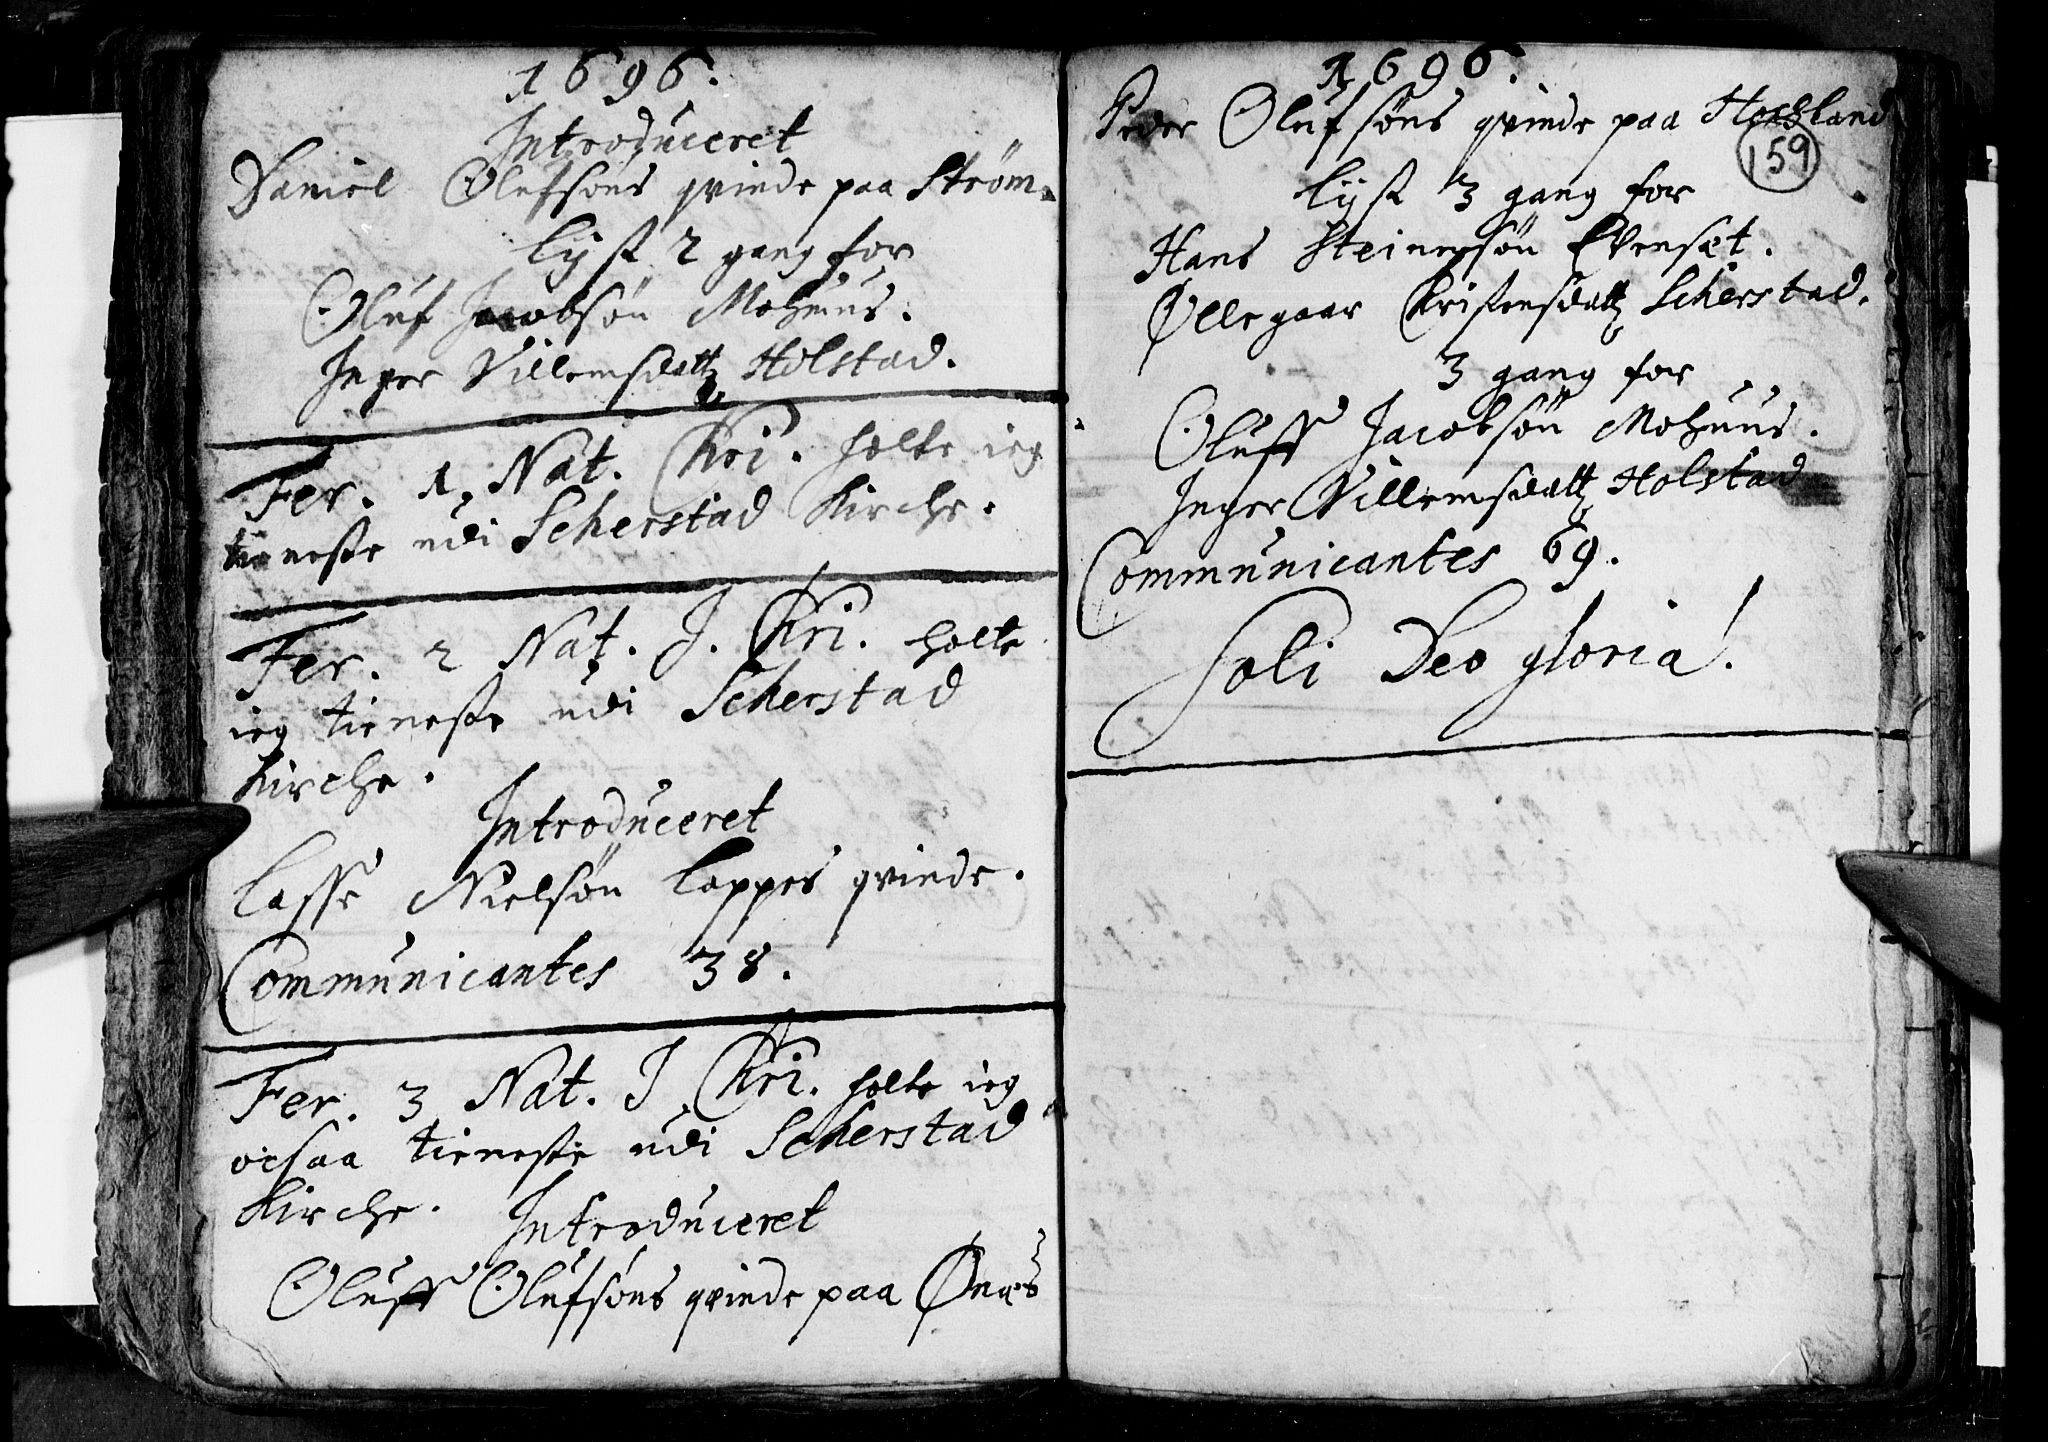 1696.
Introduceret
Daniel Olufsöns qvinde paa Ström.
lyst 2 gang for
Oluf Jacobsön Mohuus.
Inger Villemsdattr Holstad.
Fer. 1. Nat. Chri. holte ieg
tieneste udi Scherstad Kirche.
Fer. 2 Nat. J. Chri. holte
ieg tieneste udi Scherstad
Kirche.
Introduceret
Lasse Nielsön Lappes qvinde.
Communicantes 38.
Fer. 3 Nat. J Chri. holte ieg
ocsaa tieneste udi Scherstad
Kirche.
Introduceret
Oluff Olufsöns qvinde paa Ønæs
1696.
Peder Olufsöns qvinde paa
159
lyst 3 gang for
Hans Steinersön Evensæt.
Øllegaar Christensdattr Scherstad.
3 gang for
Oluff Jacobsön Mohuus.
Inger Villemsdattr Holstad
Communicantes 69.
Soli Deo gloria!